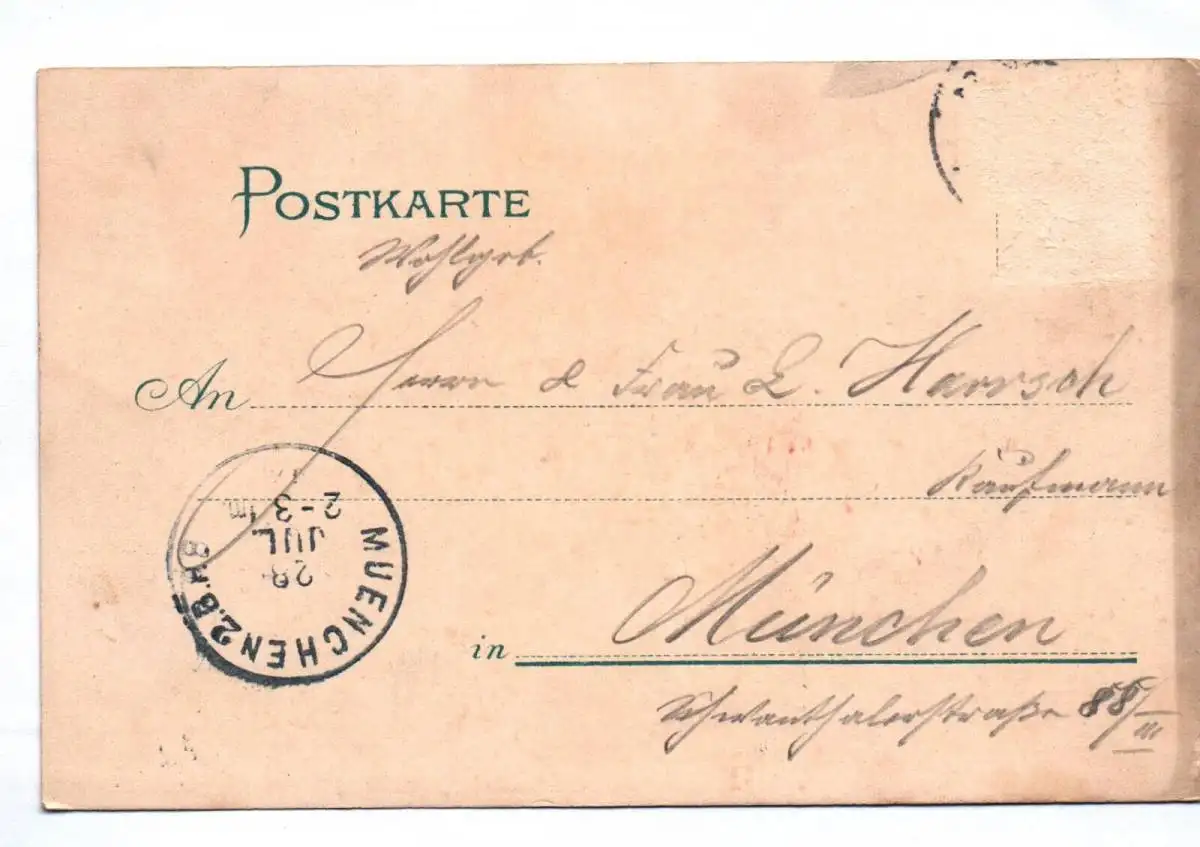 POSTKARTE
Wohlgeb.
An Herrn & Frau L. Harrsch
Kaufmann
MUENCHEN 2.B.H.B
28
JUL.
2-3 Nm.
in München
Schwanthalerstraße 88/III